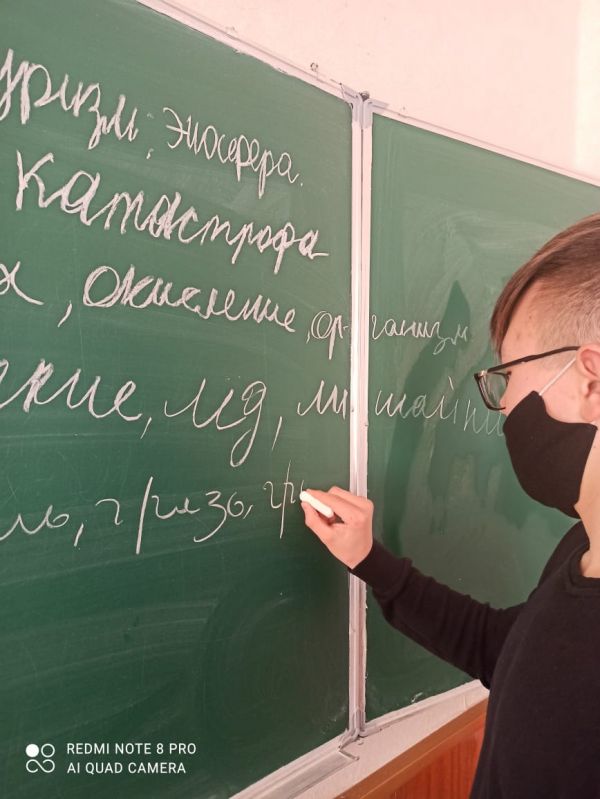 уризм, экосфера.
Катастрофа
х, окисление, организм
ние, лед, лишайни
ль, грязь, гр
REDMI NOTE 8 PRO
AI QUAD CAMERA